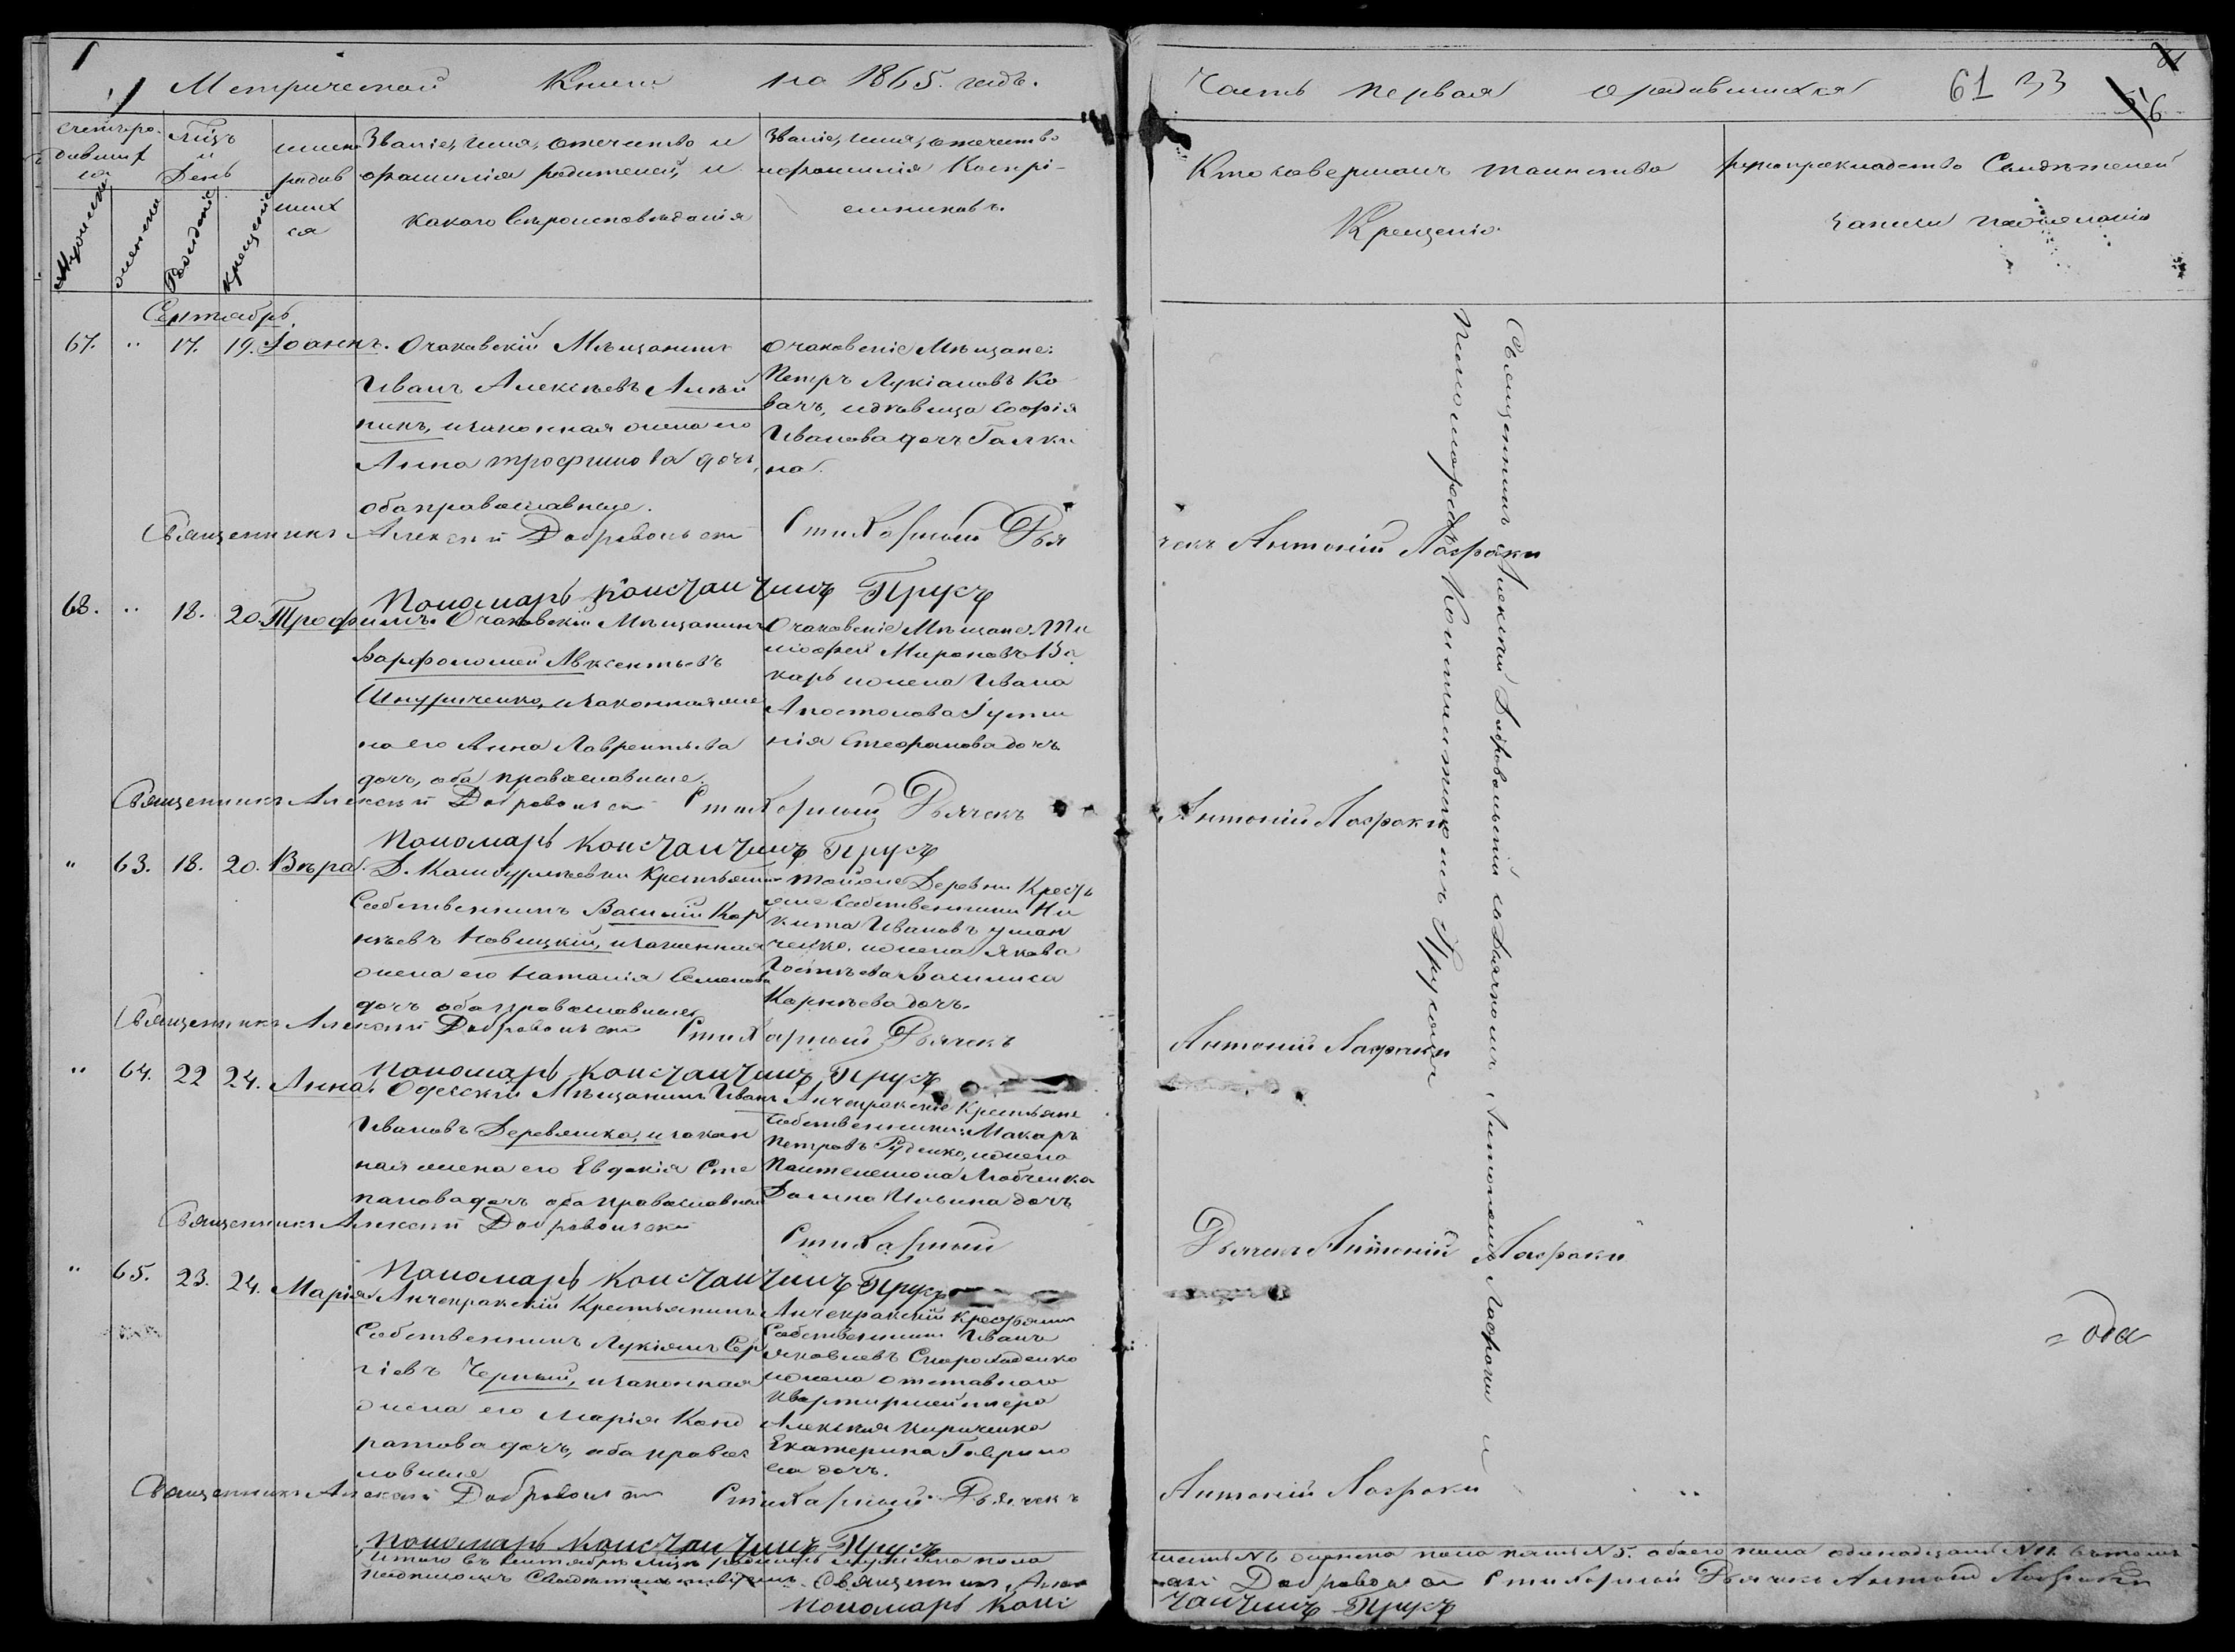 Метрической Книги на 1865. годъ.
Часть первая о родившихся 61 33
56
Счетъ родившихся
Мѣцъ и День
имена родившихся
Званіе, имя, отчество и фамилія родителей, и какого Вѣроисповѣданія
Званіе, имя, отечество и фамилія Воспріемниковъ.
Кто совершалъ таинство Крещенія
Рукоприкладство Свидѣтелей записи по желанію
Мужеска
женска
Рожденіе
Крещеніе
Сентябрь.
67. " 17. 19. Іоаннъ.
Очаковскій Мѣщанинъ
Иванъ Алексѣевъ Алей
никъ, и законная жена его
Анна Трофимова дочь,
оба православные.
Очаковскіе Мѣщане:
Петръ Лукіановъ Ко
вачъ, и дѣвица Софія
Иванова дочь Галки
на.
Священникъ Алексій Добровольскій Стихарный Дья
чекъ Антоній Лафаки
Пономарь Константинъ Прусъ
68. " 18. 20. Трофимъ.
Очаковскій Мѣщанинъ
Варфоломей Авксентьевъ
Шнуриченко, и законная же
на его Анна Лаврентьева
дочь, оба православные.
Очаковскіе Мѣщане: Ти
мофей Мироновъ
карь и жена Ивана
Апостолова Іусти
нія Стефанова дочь
Священникъ Алексій Добровольскій Стихарный Дьячекъ
Антоній Лафаки
Пономарь Константинъ Прусъ
" 63. 18. 20. Вѣра.
Д. Крестьянинъ
Собственникъ Василій Кор
нѣевъ Новицкій, и законная
жена его Наталія Семенова
дочь оба православные
Тойже Деревни Кресть
яне Собственники Ни
кита Ивановъ Уман
ченко, и жена Якова
Василиса
Корнѣева дочь.
Священникъ Алексій Добровольскій Стихарный Дьячекъ
Антоній Лафаки
Пономарь Константинъ Прусъ
" 64. 22 24. Анна.
Одесскій Мѣщанинъ Иванъ
Ивановъ Деревянко, и закон
ная жена его Евдокія Сте
панова дочь оба православные
Анчекракскіе Крестьяне
Собственники: Макаръ
Петровъ Руденко, и жена
Пантелемона Любченка
Ильина дочь
Священникъ Алексій Добровольскій
Стихарный
Дьячекъ Антоній Лафаки
Пономарь Константинъ Прусъ
" 65. 23. 24. Марія
Анчекракскій Крестьянинъ
Собственникъ Лукіянъ Сер
гіевъ Черный, и законная
жена его Марія Конд
ратова дочь, оба правос
лавные
Анчекракскій Крестьянинъ
Собственникъ Иванъ
Яковлевъ Скороходенко
и жена отставнаго
Квартирмейстера
Алексѣя Кириченка
Екатерина Гаврило
ва дочь.
Священникъ Алексій Добровольскій Стихарный Дьячекъ
Антоній Лафаки
Пономарь Константинъ Прусъ
Священникъ Алексій Добровольскій съ Дьячкомъ Антоніемъ Лафаки и
Пономаремъ Константиномъ Прусомъ
= ода
Итого въ Сентябрѣ Мцѣ родилось мужеска пола
шесть №6 женска пола пять №5. обоего пола одинадцать №11. въ томъ
подписомъ Свидѣтельствуемъ. Священникъ Алек
сій Добровольскій Стихарный Дьячекъ Антоній Лафаки
Пономарь Конс
тантинъ Прусъ